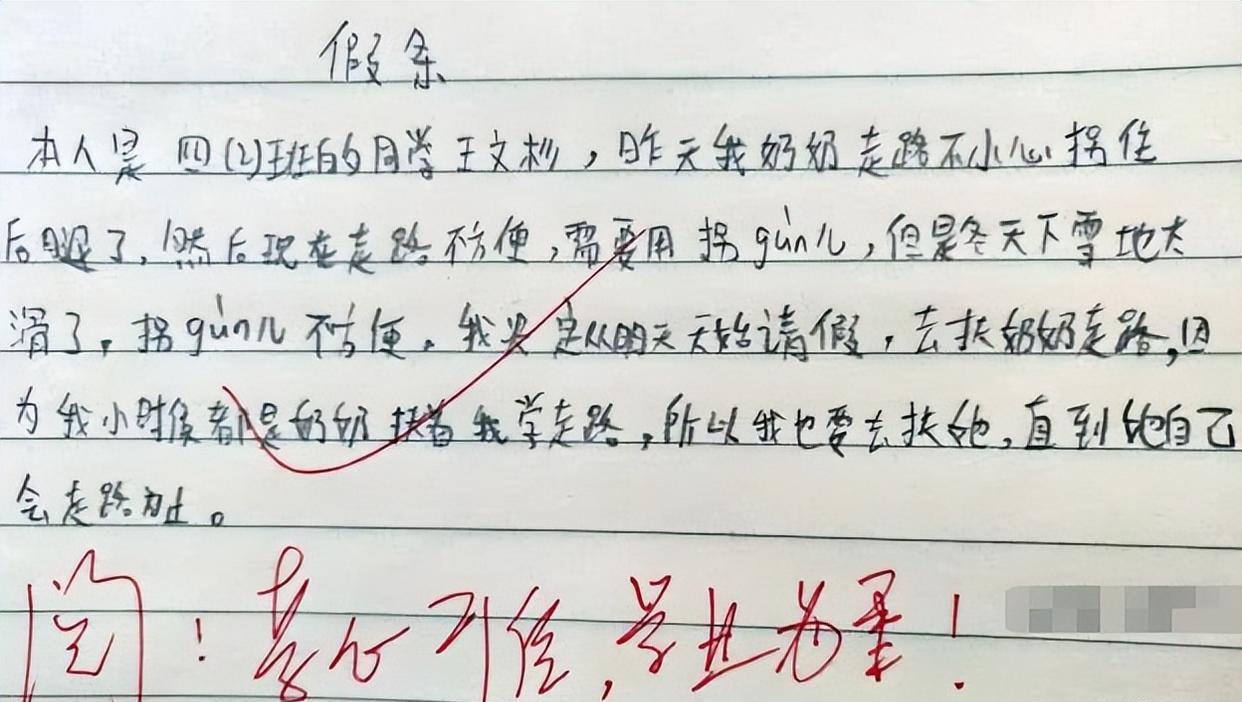 假条
本人是四(2)班的同学王文杉，昨天我奶奶走路不小心拐住
后腿了，然后现在走路不方便，需要用拐gùn儿，但是冬天下雪地太
滑了，拐gùn儿不方便。我决定从明天天始请假，去扶奶奶走路，因
为我小时候都是奶奶扶着我学走路，所以我也要去扶她，直到她自己
会走路为止。
阅！孝心可佳，学业为重！